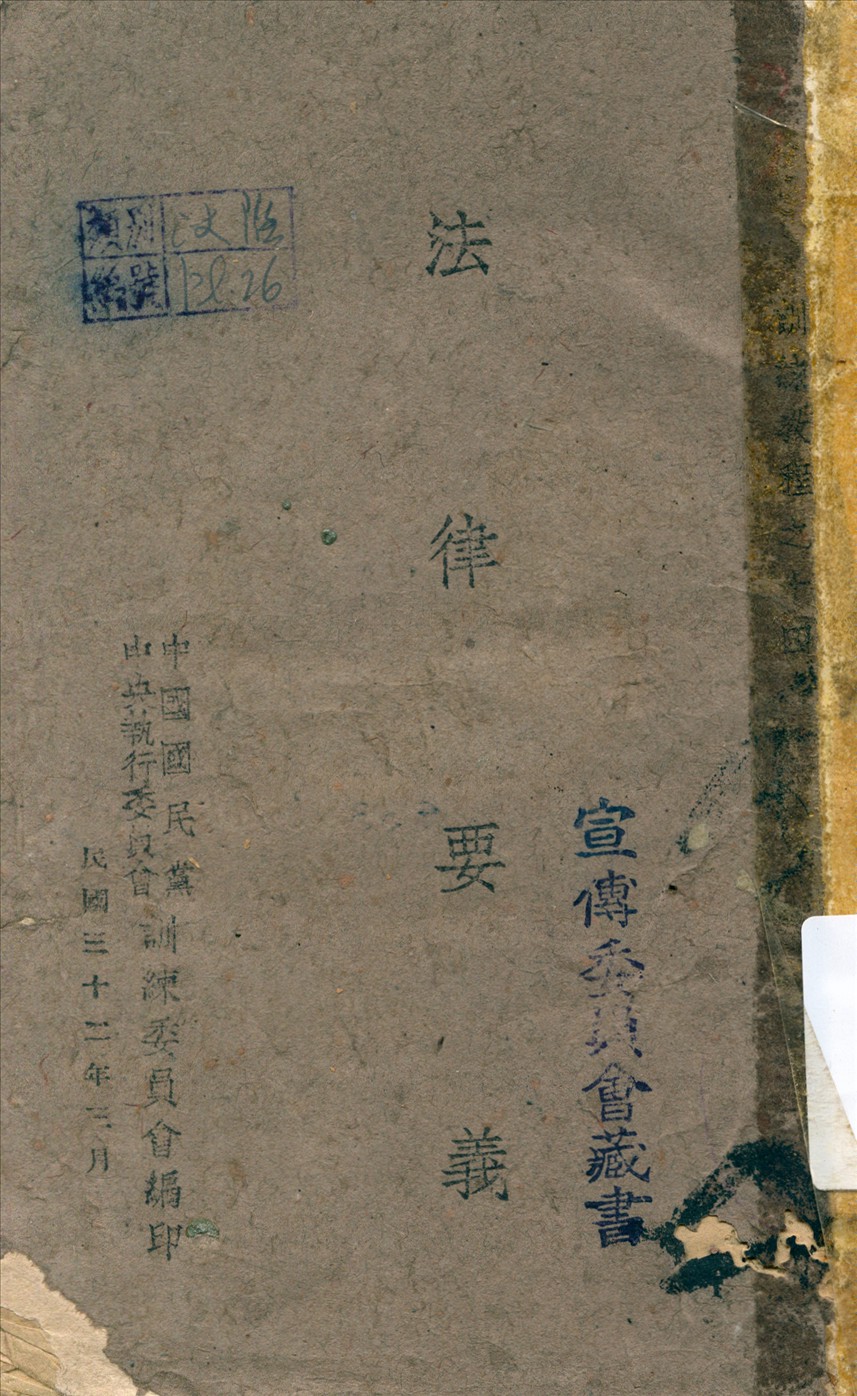 訓練教程之十四
宣傳委員會藏書
法律要義
中國國民黨
中央執行委員會
訓練委員會編印
民國三十二年三月
類別
編號
26